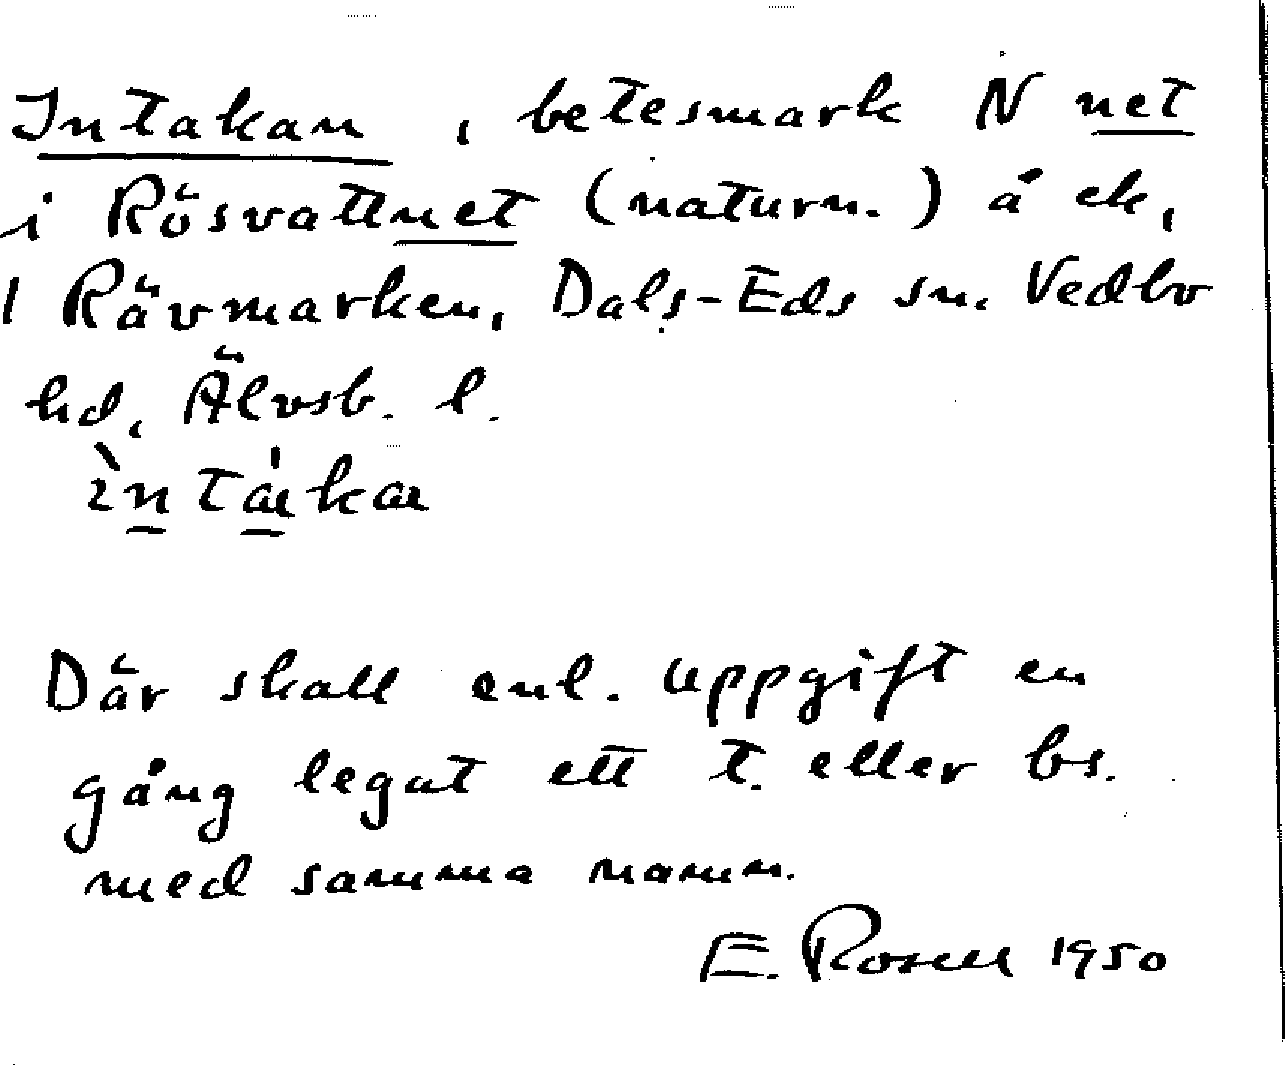 Intakan, betesmark N net
i Rösvattnet (naturn.) å ek,
1 Rävmarken, Dals-Eds sn. Vedbo
hd, Älvsb. l.
Där skall enl. uppgift en
gång legat ett t. eller bs.
med samma namn.
E. Rosell 1950